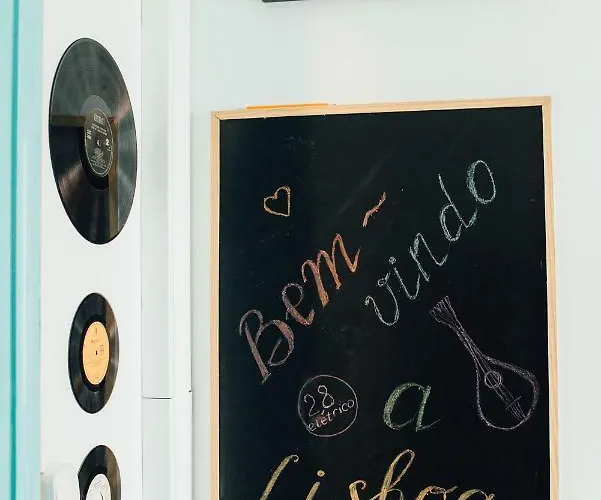 Bem-
vindo
28
elétrico
a
Lisboa